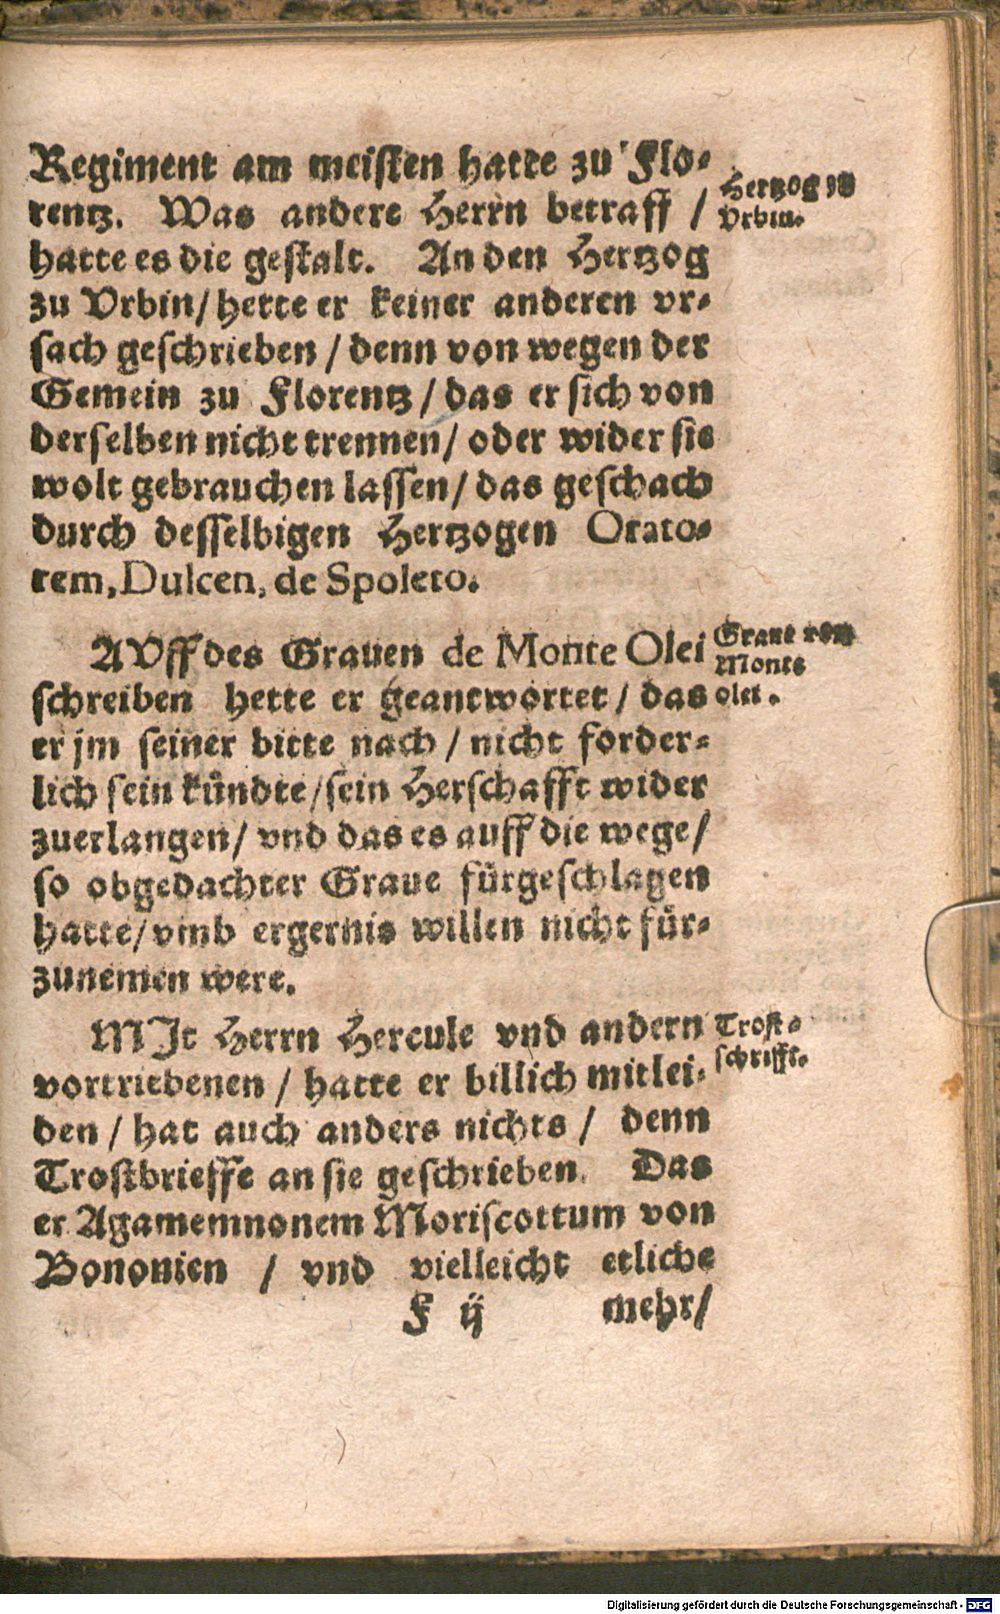 Regiment am meiſten hatte zu Flo⸗
rentz. Was andere Herrn betraff /
Hertzog zu
Vrbin.
hatte es die geſtalt. An den Hertzog
zu Vrbin/ hette er keiner anderen vr⸗
ſach geſchrieben / denn von wegen der
Gemein zu Florentz / das er ſich von
derſelben nicht trennen/ oder wider ſie
wolt gebrauchen laſſen/ das geſchach
durch deſſelbigen Hertzogen Orato⸗
rem, Dulcen, de Spoleto.
AVff des Grauen de Monte Olei
Graue von
Monte
olei.
ſchreiben hette er geantwortet / das
er jm ſeiner bitte nach / nicht forder⸗
lich ſein kündte/ ſein Herſchafft wider
zuerlangen/ vnd das es auff die wege/
ſo obgedachter Graue fürgeſchlagen
hatte/ vmb ergernis willen nicht für⸗
zunemen were.
MJt Herrn Hercule vnd andern
Troſt⸗
ſchrifft.
vortriebenen / hatte er billich mitlei⸗
den / hat auch anders nichts / denn
Troſtbrieffe an ſie geſchrieben. Das
er Agamemnonem Moriſcottum von
Bononien / vnd vielleicht etliche
F ij mehr/
Digitalisierung gefördert durch die Deutsche Forschungsgemeinschaft - DFG